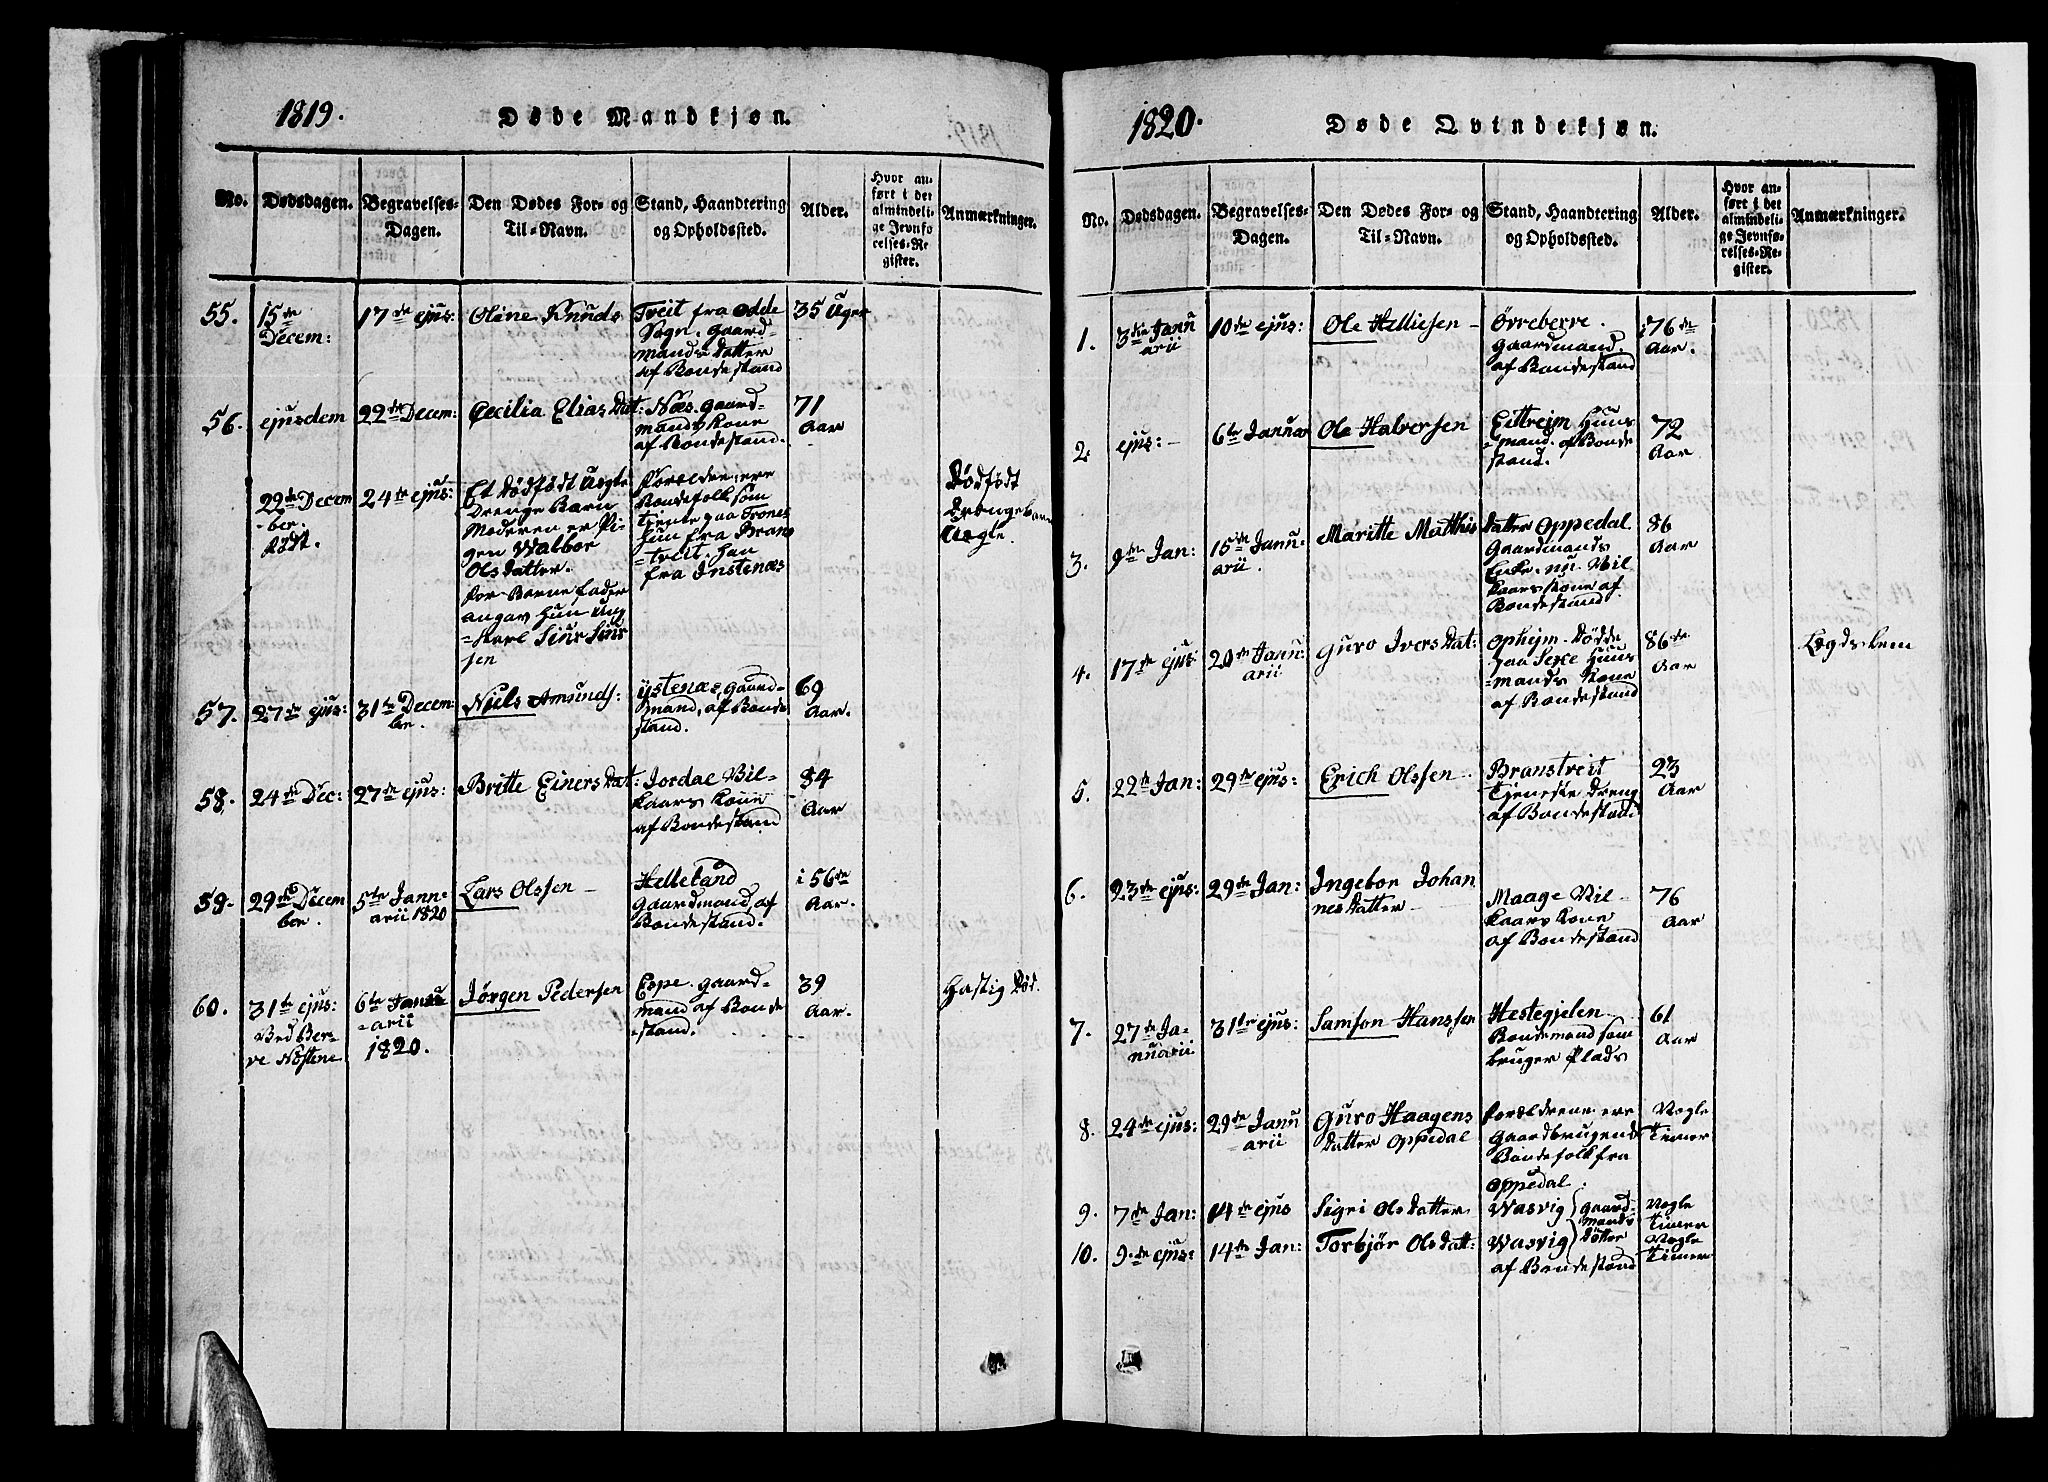 1819.
Døde Mandkjøn.
No.
Dødsdagen.
Begravelses-
Dagen.
Den Dødes For- og
Til-Navn.
Stand, Haandtering
og Opholdssted.
Alder.
Hvor an-
ført i det
almindeli-
ge Jevnfø-
relses-Re-
gister.
Anmærkninger.
55.
15de
Decem:
17de ejus:
Oline Knuds
Treit fra Odde
Sogn. Gaard-
mands Datter
af Bondestand
35 Uger
56.
ejusdem
22de Decem:
Cecilia Elias Dat:
Næs. Gaard-
mands Kone
af Bondestand.
71
Aar
22de Decem
-ber.
født.
24de ejus:
Et dødfødt Uægte
Drenge Barn
Moderen er Pi-
gen Walbor
Olsdatter.
For Barne Fader
angav hun Ung
=karl Siur Siur
sen
Forældrene ere
Bondefolk som
tjente paa Trones
hun fra Brans
=treit. han
fra Instenæs
Dødfødt
Drengebarn
Uægte.
57.
27de ejus:
31te Decem-
ber.
Niels Amunds:
Ystenæs, Gaard-
mand, af Bonde
stand.
69
Aar.
58.
24de Dec:
27de ejus:
Britte Einers Dat:
Jordal Vil-
kaars Kone
af Bondestand
84
Aar
59.
29de Decem
ber.
5te Janu-
arii 1820
Lars Olssen -
Helleland
Gaardmand, af
Bondestand.
i 56de
Aar.
60.
31te ejus:
Ved Ber-
ve Nøstene
6te Janu
-arii
1820.
Jørgen Pedersen
Espe. Gaard-
mand af Bonde
=stand.
39
Aar.
Hastig Død.
1820.
Døde Qvindekjøn.
No.
Dødsdagen.
Begravelses-
Dagen.
Den Dødes For- og
Til-Navn.
Stand, Haandtering
og Opholdssted.
Alder.
Hvor an-
ført i det
almindeli-
ge Jevnfø-
relses-Re-
gister.
Anmærkninger.
1.
3die Janu
arii
10de ejus:
Ole Helliesen -
Øvreberve.
Gaardmand.
af Bondestand
i 76de
Aar.
2.
ejus: -
6te Januar
Ole Halversen
Eittreim Huus
=mand. af Bonde
stand.
72
Aar
3.
9de Jan:
15de Janu-
arii.
Maritte Matthis
Datter Oppedal
Gaardmands
Enke. nu. Vil
kaarskone af
Bondestand
86
Aar
4.
17de ejus
20de Janu:
arii
Guro Ivers Dat:
Opheim. Dødde
paa Sexe Huus
=mands Kone
af Bondestand
86de
Aar
Lægdslem
5.
22de Jan:
29de ejus:
Erich Olssen
Branstreit
Tjeneste Dreng
af Bondestand
23
Aar
6.
23de ejus:
29de Jan:
Ingebor Johan
nes Datter
Maage Vil-
kaars Kone
af Bondestand
76
Aar
7.
27de Ja-
nuarii
31te ejus:
Samson Hanssen
Hestegjelen
Bondemand som
bruger Plads
61
Aar
8.
24de ejus:
29de Janu
arii
Guro Haagens
Datter Oppedal
Forældrene ere
Gaardbrugende
Bondefolk fra
Oppedal.
Nogle
Timer
9.
7de Jan:
14de ejus
Sigri Olsdatter
Wasvig
Gaard-
mands
Døtter
Nogle
Timer
10.
9de ejus:
14de Jan:
Torbjør Olsdatt:
Wasvig
af Bondestand
Nogle
Timer